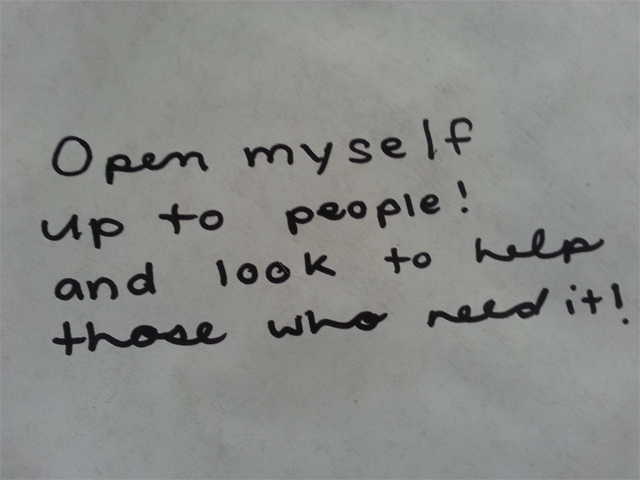 Open myself
up to people!
and look to help
those who need it!